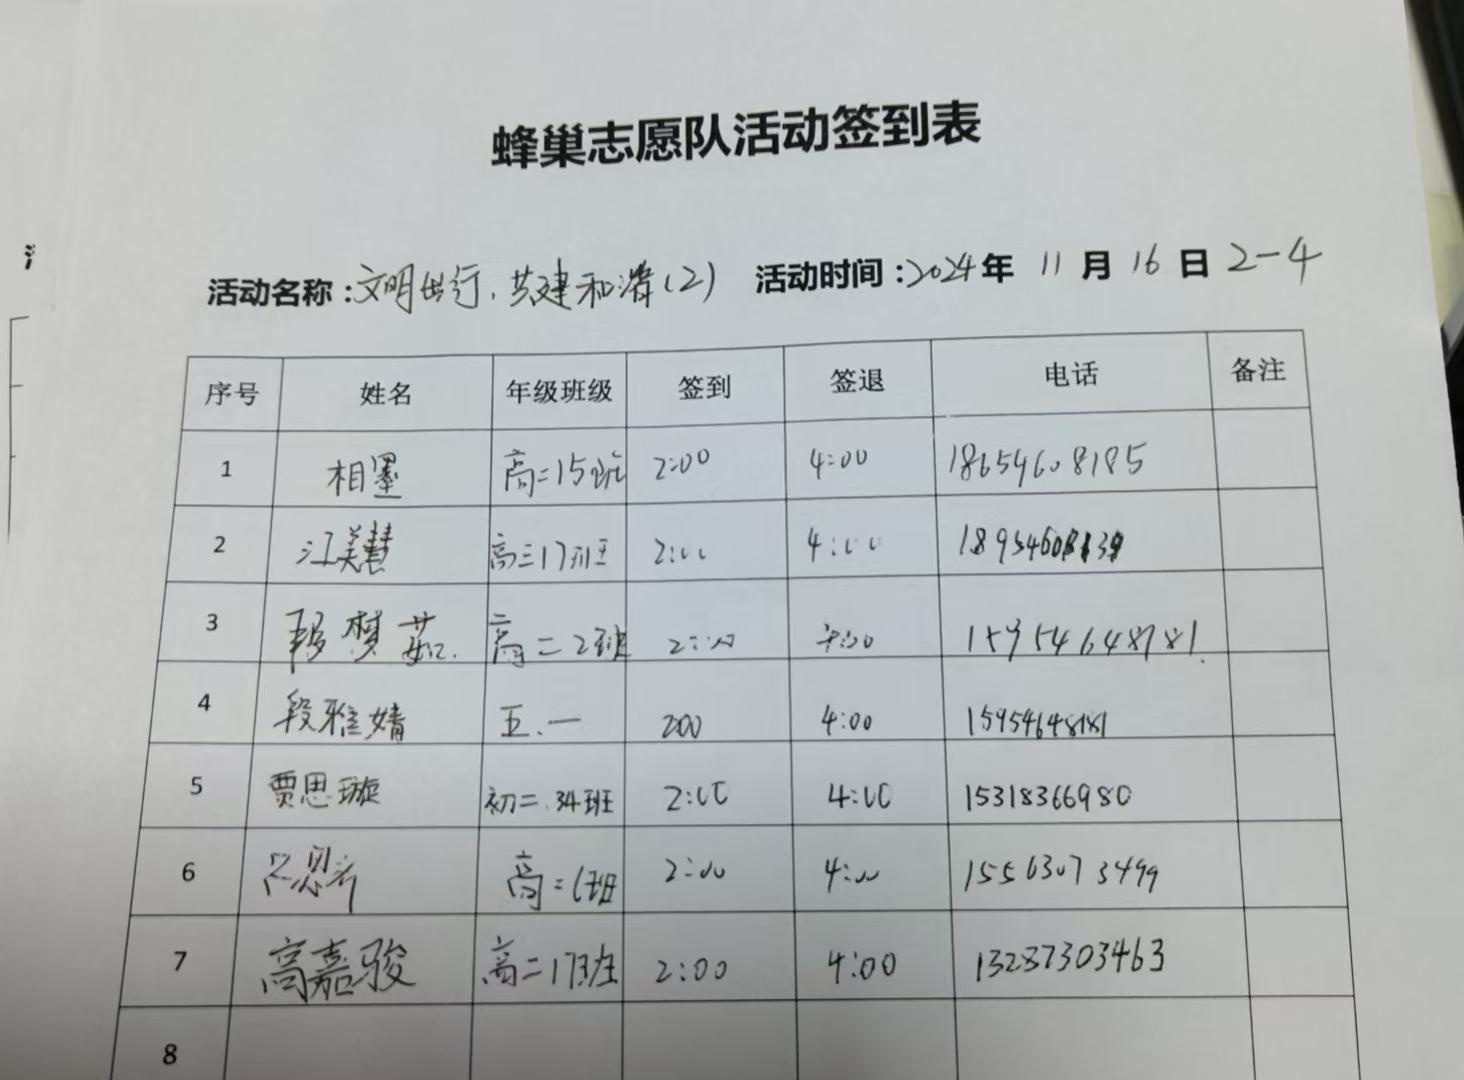 蜂巢志愿队活动签到表
活动名称:文明出行、共建和谐(2) 活动时间:2024年 11月 16日 2-4
序号 姓名 年级班级 签到 签退 电话 备注
1 相墨 高二15班 2:00 4:00 18654608185
2 江美慧 高三17班 2:00 4:00
3 梦茹. 高二2班 2:00
4 段雅婧 五.一 200 4:00 15954648181
5 贾思璇 初二.34班 2:00 4:00 15318366980
6 高二 2:00 4:00 15563073499
7 高嘉骏 高二17班 2:00 4:00 13287303463
8